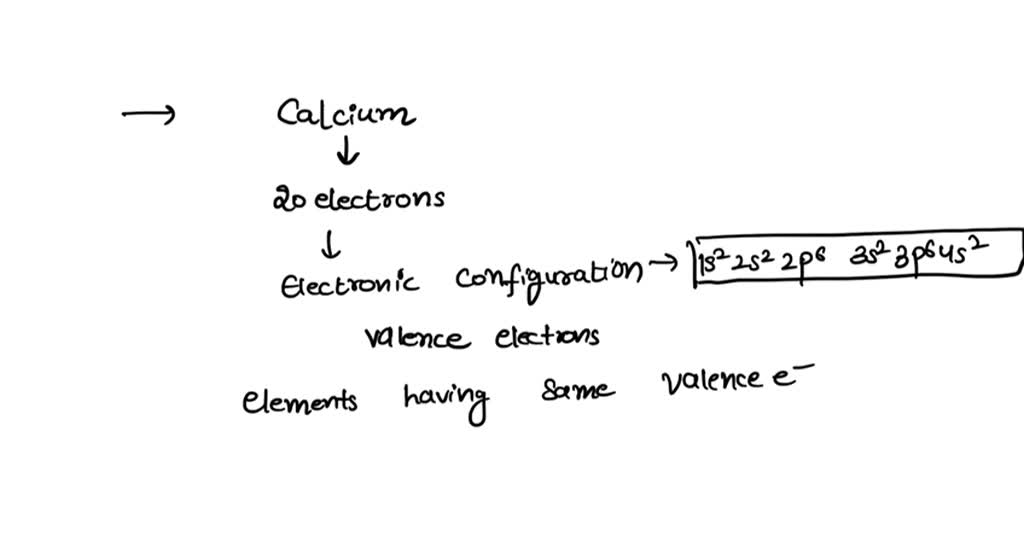 → Calcium
↓
20 electrons
↓
Electronic configuration → 1s² 2s² 2p⁶ 3s² 3p⁶ 4s²
valence electrons
elements having same valence e⁻